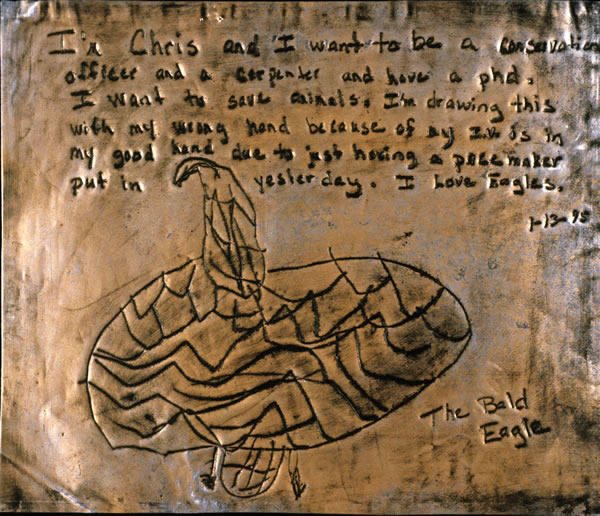 I'm Chris and I want to be a conservation
officer and a carpenter and have a phd.
I want to save animals. I'm drawing this
with my wrong hand because of my I.V. is in
my good hand due to just having a pacemaker
put in yesterday. I Love Eagles.
1-13-95
The Bald
Eagle